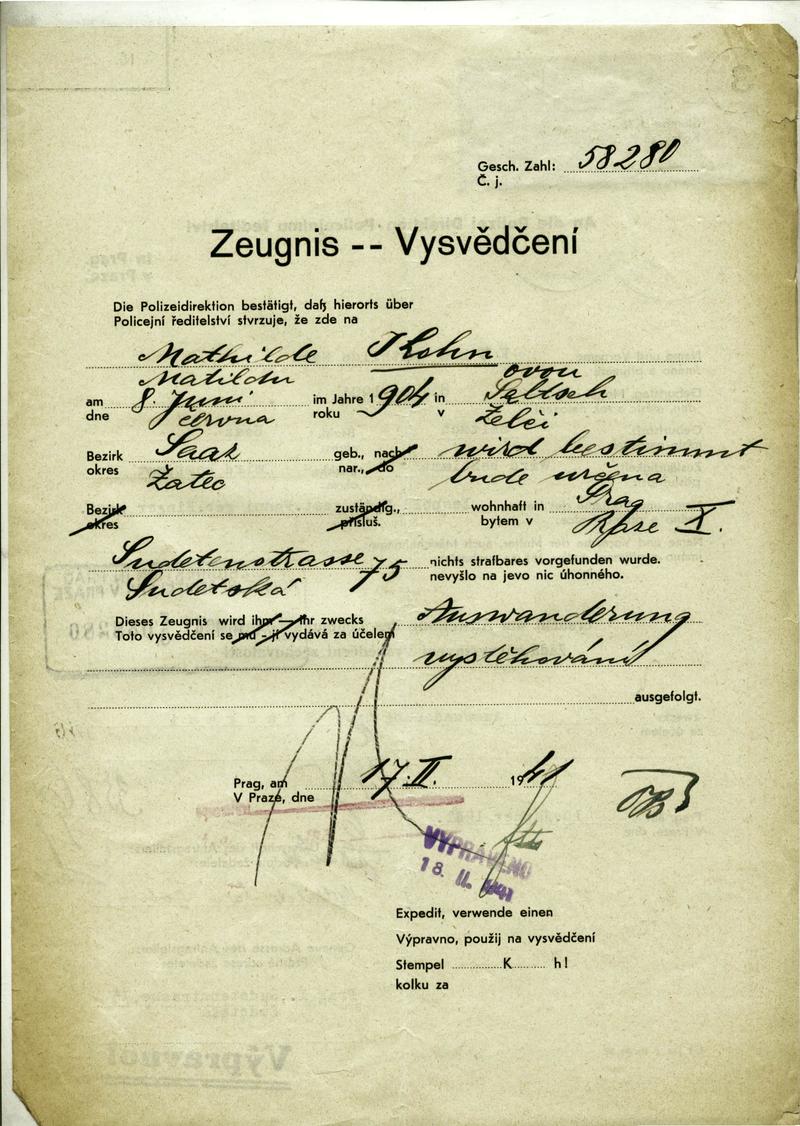 Gesch. Zahl: 58280
Č. j.
Zeugnis -- Vysvědčení
Die Polizeidirektion bestätigt, daß hierorts über
Policejní ředitelství stvrzuje, že zde na
Mathilde Kohn
Matildu ovou
am 8. Juni im Jahre 1904 in Saltsch
dne června roku v Želči
Bezirk Saaz geb., nach wird bestimmt
okres Žatec nar., do bude určena
Bezirk zuständig., wohnhaft in Prag
okres přísluš. bytem v Praze X.
Sudetenstrasse 75 nichts strafbares vorgefunden wurde.
Sudetská nevyšlo na jevo nic úhonného.
Dieses Zeugnis wird ihm — ihr zwecks Auswanderung
Toto vysvědčení se mu - jí vydává za účelem
vystěhování
ausgefolgt.
Prag, am 17. II. 1941
V Praze, dne
VYPRAVENO
18. II. 1941
Expedit, verwende einen
Výpravno, použij na vysvědčení
Stempel K h!
kolku za
Výpravnoí